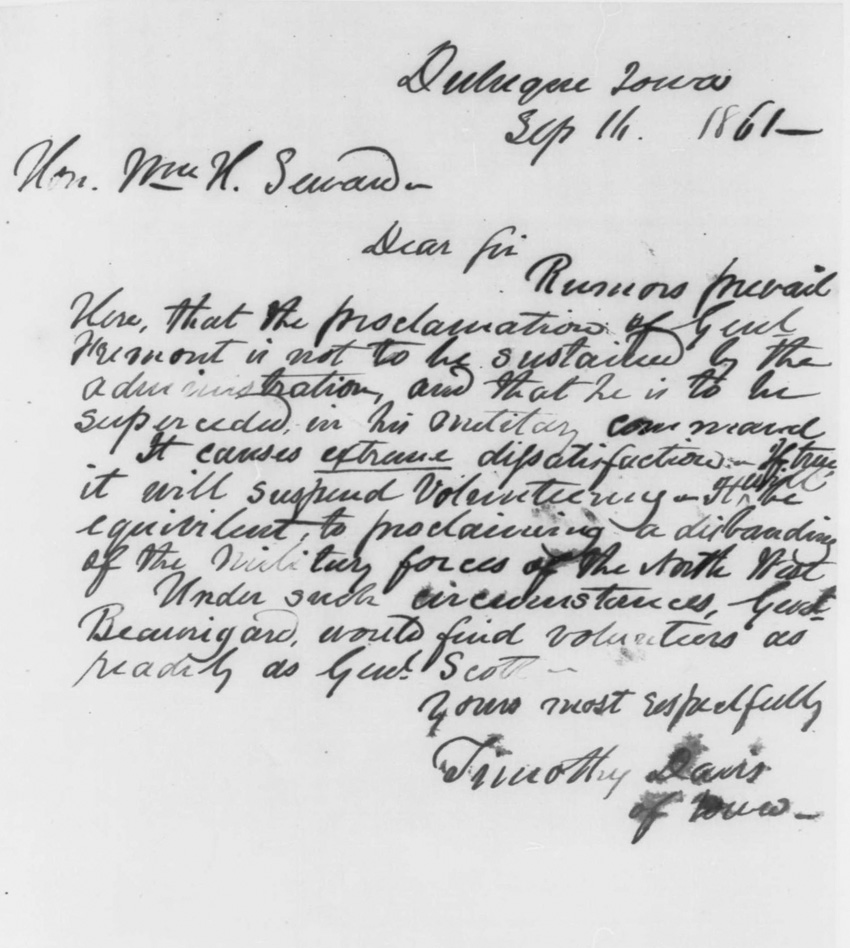 Dubuque Iowa
Sep 16. 1861—
Hon. Wm H. Seward—
Dear Sir
Rumors prevail
Here, that the proclamation of Genl
Fremont is not to be sustained by the
administration, and that he is to be
superceded, in his military command
It causes extreme dissatisfaction— If true
it will suspend Volunteering— It will be
equivilent, to proclaiming a disbanding
of the Military forces of the North West
Under such circumstances, Genl
Beaurigard, would find volunteers as
readily as Genl. Scott—
Yours most respectfully
Timothy Davis
of Iowa—